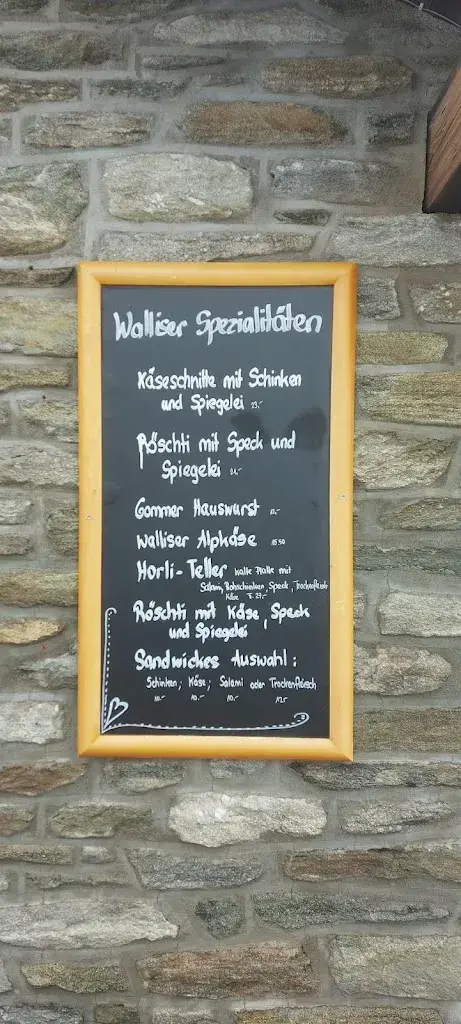 Walliser Spezialitäten
Käseschnitte mit Schinken
und Spiegelei 23.-
Röschti mit Speck und
Spiegelei 24.-
Gommer Hauswurst
Walliser Alpkäse 15.50
Horli-Teller kalte Platte mit
Salami, Rohschinken, Speck, Trockenfleisch
Käse 27.-
Röschti mit Käse, Speck
und Spiegelei
Sandwiches Auswahl:
Schinken, Käse, Salami oder Trockenfleisch
10.- 10.- 10.- 12.-